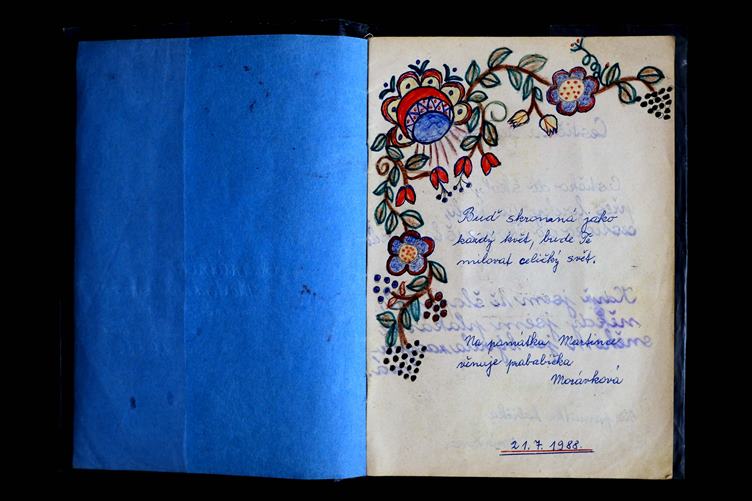 Buď skromná jako
každý květ, bude Tě
milovat celičký svět.
Na památku Martince
věnuje prababička
Morávková
21. 7. 1988.